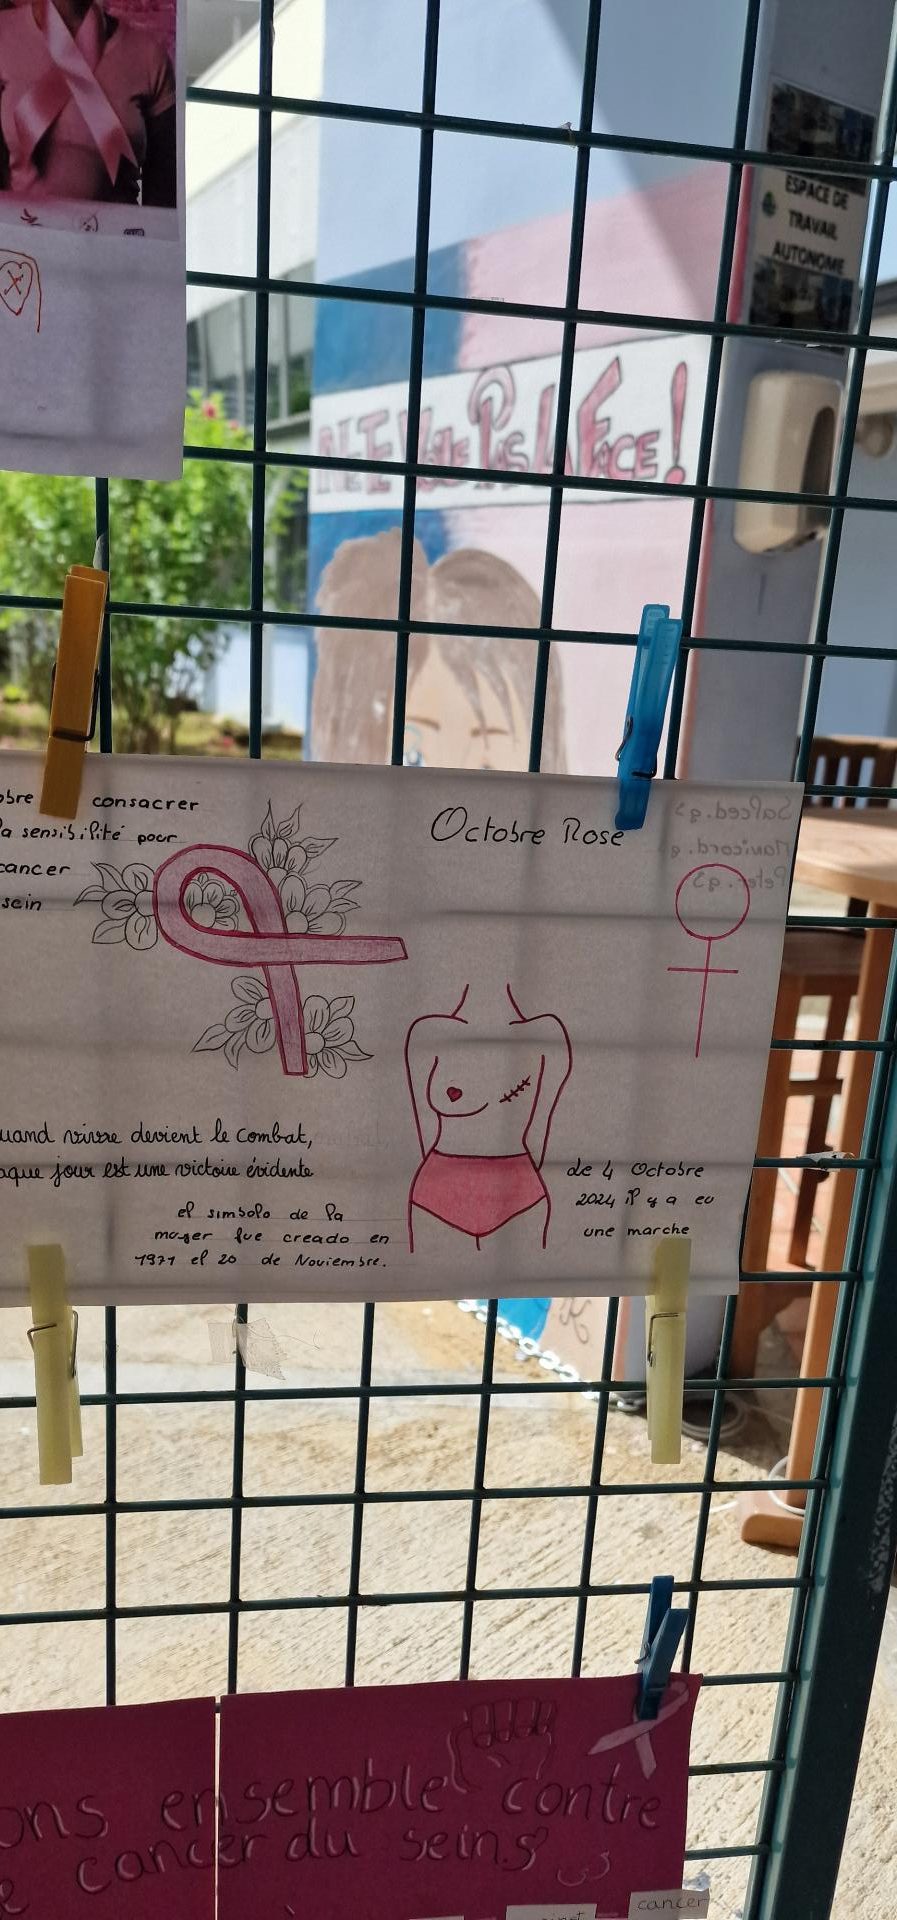 ESPACE DE
TRAVAIL
AUTONOME
NE TE VOILE PAS LA FACE!
obre consacrer
a sensibilité pour
cancer
sein
Octobre Rose
uand vivre devient le combat,
aque jour est une victoire évidente
el simbolo de la
mujer fue creado en
1971 el 20 de Noviembre.
de 4 Octobre
2024 il y a eu
une marche
ons ensemble contre
e cancer du seins
cancer